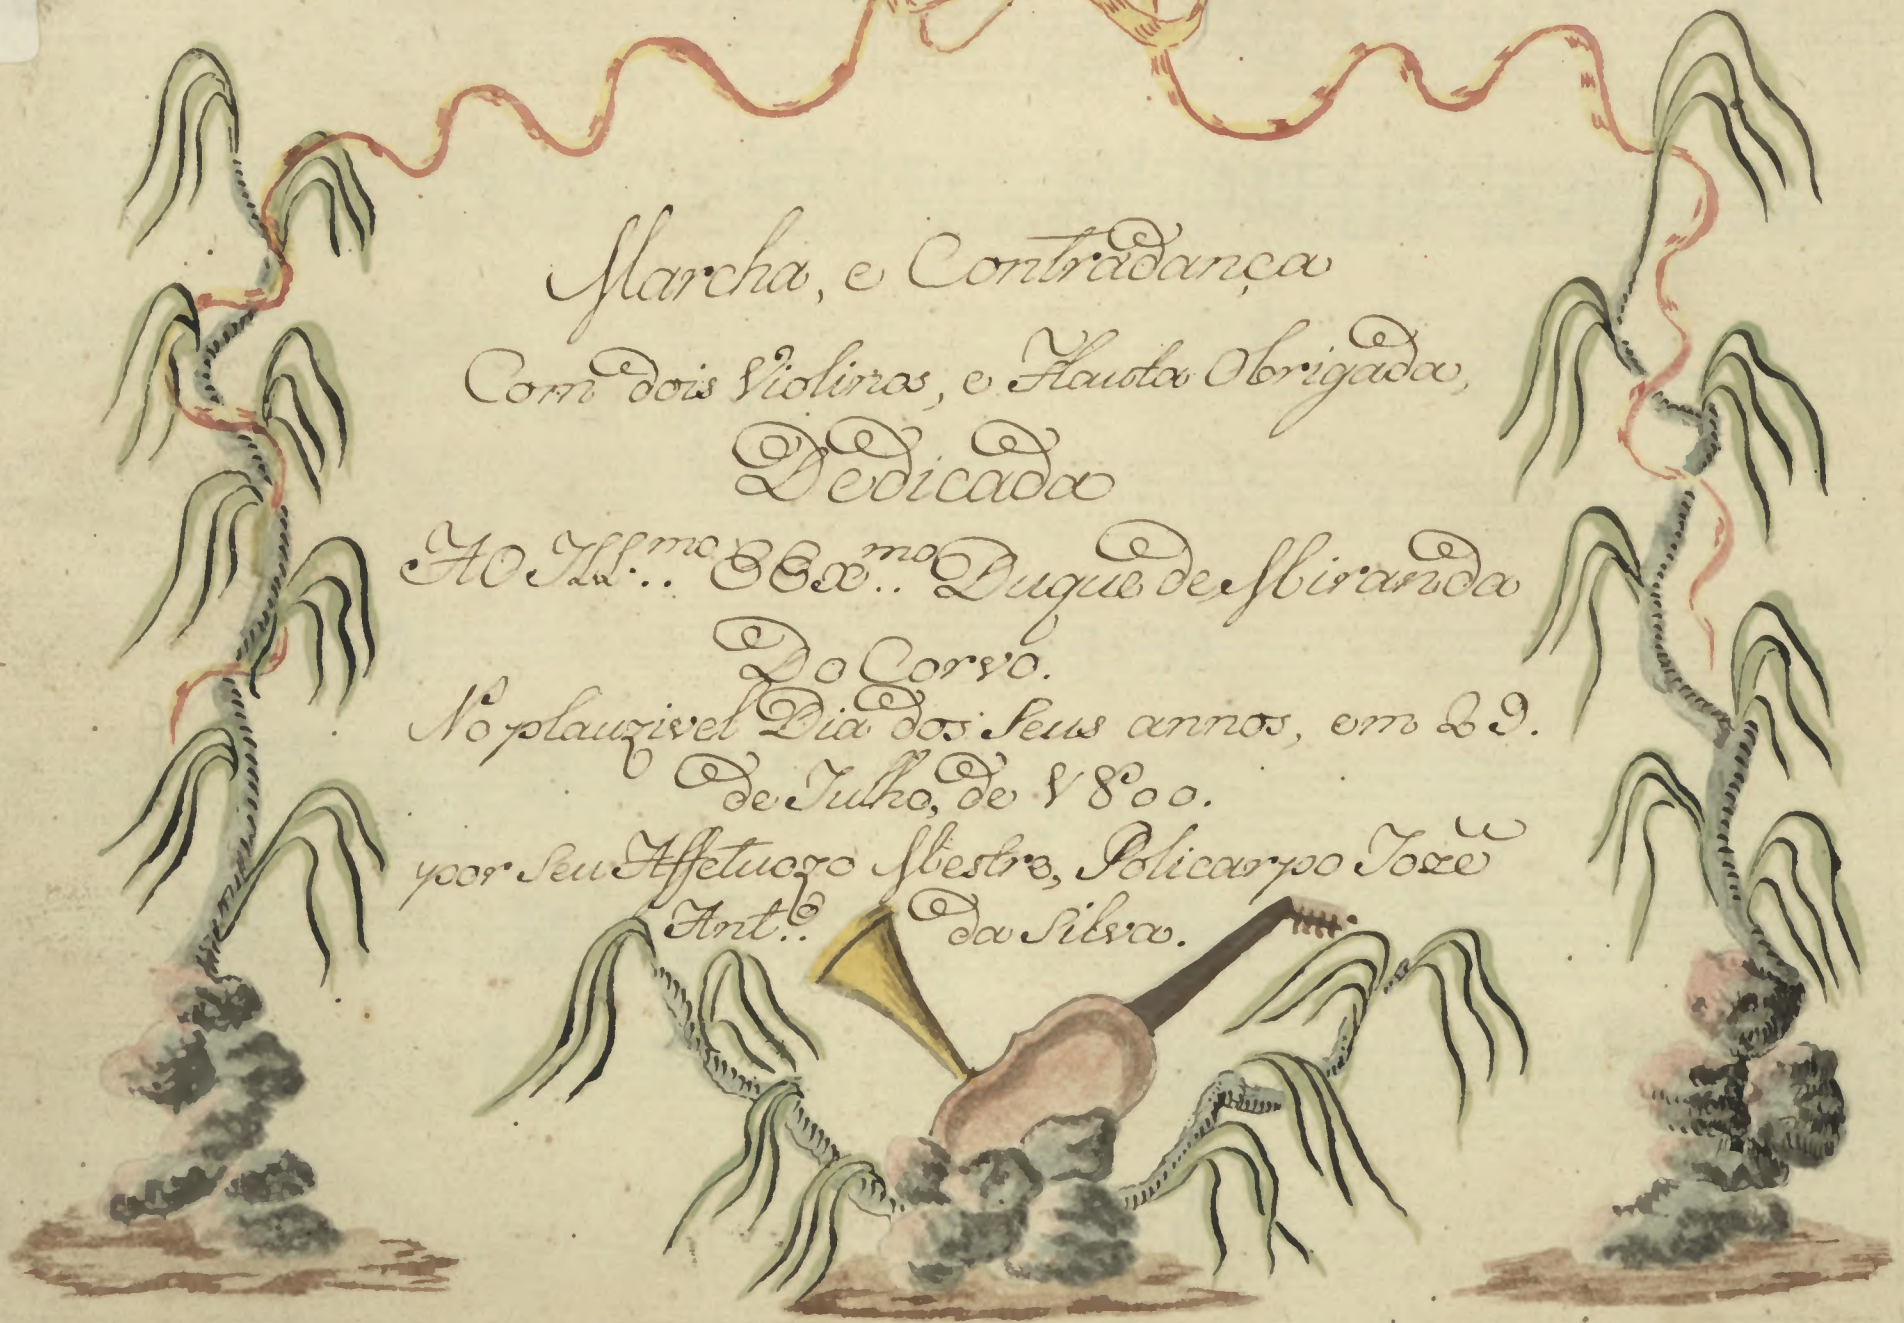 Marcha, e Contradança
Com dois Violinos, e Flauta Obrigada,
Dedicada
AO Ill.mo E Ex.mo Duque de Miranda
Do Corvo.
No plauzivel Dia dos Seus annos, em 29.
de Julho, de 1800.
por Seu Affetuozo Mestre, Policarpo Jozé
Ant.o da Silva.